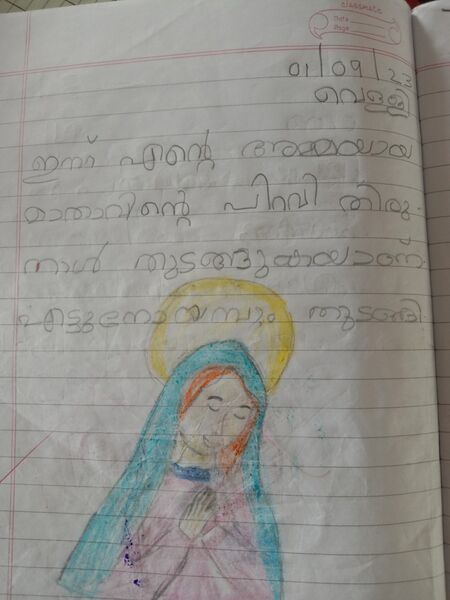 classmate
Date
Page
01/09/23
വെള്ളി
ഇന്ന് എന്റെ അമ്മയായ
മാതാവിന്റെ പിറവി തിരു-
നാൾ തുടങ്ങുകയാണ്.
എട്ടുനോയമ്പും തുടങ്ങി.